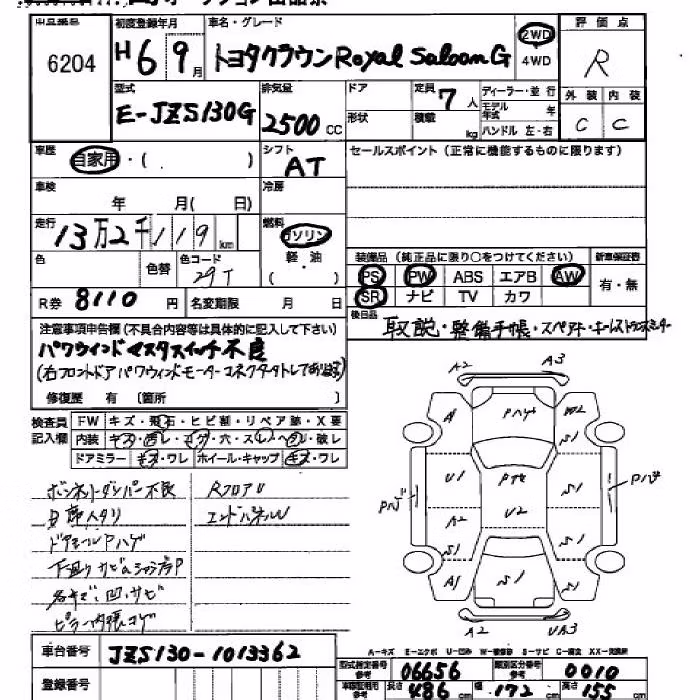 出品番号
6204
初度登録年月
H6 9月
車名・グレード
トヨタクラウン Royal Saloon G
2WD
4WD
評価点
R
型式
E-JZS130G
排気量
2500 cc
ドア
形状
定員 7人
積載 kg
ディーラー・並行
モデル年式 年
ハンドル 左・右
外装 内装
C C
車歴
自家用・( )
シフト
AT
セールスポイント (正常に機能するものに限ります)
車検
年 月( 日)
冷房
走行
13万2千119km
燃料
ガソリン
軽・油
( )
色
色替
色コード
29T
装備品 (純正品に限り○をつけてください)
新車保証書
PS PW ABS エアB AW
SR ナビ TV カワ
有・無
R券 8110円
名変期限 月 日
後日品
取説・整備手帳・スペアキー
注意事項申告欄 (不具合内容等は具体的に記入して下さい)
パワウインドマスタスイッチ不良
(右フロントドアパワウインドモーターコネクタ
修復歴 有 [箇所 ]
検査員記入欄
FW キズ・飛石・ヒビ割・リペア跡・X要
内装 キズ・汚レ・コゲ・穴・スレ・ヘタリ・破レ
ドアミラー キズ・ワレ ホイール・キャップ キズ・ワレ
ボンネットダンパー不良
Rフロア U
エンドパネル U
ドアモールPハゲ
下回りサビ
各キズ・凹・サビ
ピラー内張コゲ
A2 A3
A1 Pハゲ W2
S1
U1 PTセ S1
Pハゲ Pハゲ
A2 U2
S1 S1
A1 S1 S1
A2 UA3
A-キズ E-エクボ U-凹み W-補修跡 S-サビ C-腐食 XX-交換済
車台番号
JZS130-1013362
登録番号
型式指定番号 参考 06656
類別区分番号 参考 0010
長さ 486 cm 幅 172 cm 高さ 155 cm